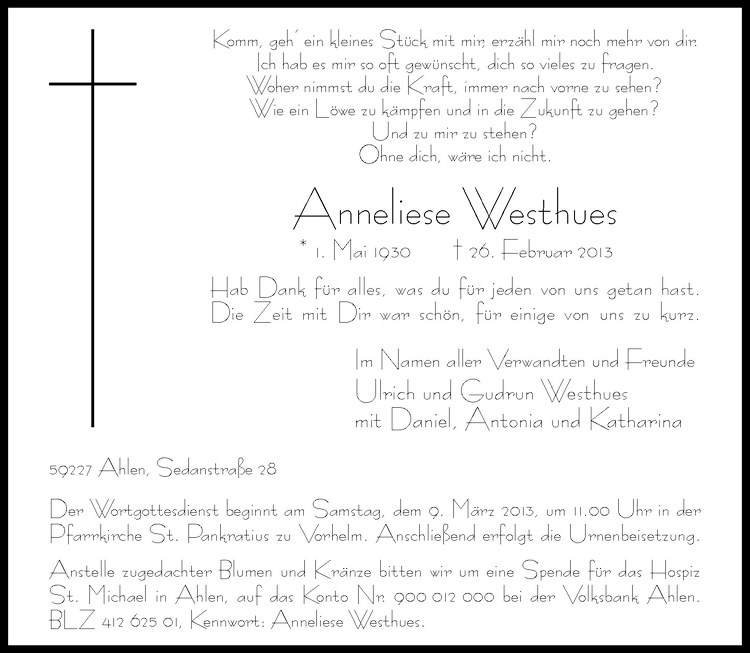 Komm, geh´ ein kleines Stück mit mir, erzähl mir noch mehr von dir.
Ich hab es mir so oft gewünscht, dich so vieles zu fragen.
Woher nimmst du die Kraft, immer nach vorne zu sehen?
Wie ein Löwe zu kämpfen und in die Zukunft zu gehen?
Und zu mir zu stehen?
Ohne dich, wäre ich nicht.
Anneliese Westhues
* 1. Mai 1930 † 26. Februar 2013
Hab Dank für alles, was du für jeden von uns getan hast.
Die Zeit mit Dir war schön, für einige von uns zu kurz.
Im Namen aller Verwandten und Freunde
Ulrich und Gudrun Westhues
mit Daniel, Antonia und Katharina
59227 Ahlen, Sedanstraße 28
Der Wortgottesdienst beginnt am Samstag, dem 9. März 2013, um 11.00 Uhr in der
Pfarrkirche St. Pankratius zu Vorhelm. Anschließend erfolgt die Urnenbeisetzung.
Anstelle zugedachter Blumen und Kränze bitten wir um eine Spende für das Hospiz
St. Michael in Ahlen, auf das Konto Nr. 900 012 000 bei der Volksbank Ahlen.
BLZ 412 625 01, Kennwort: Anneliese Westhues.